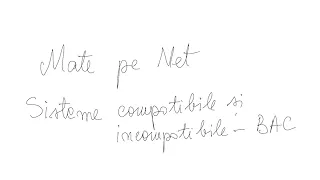 Mate pe Net
Sisteme compatibile si
incompatibile - BAC